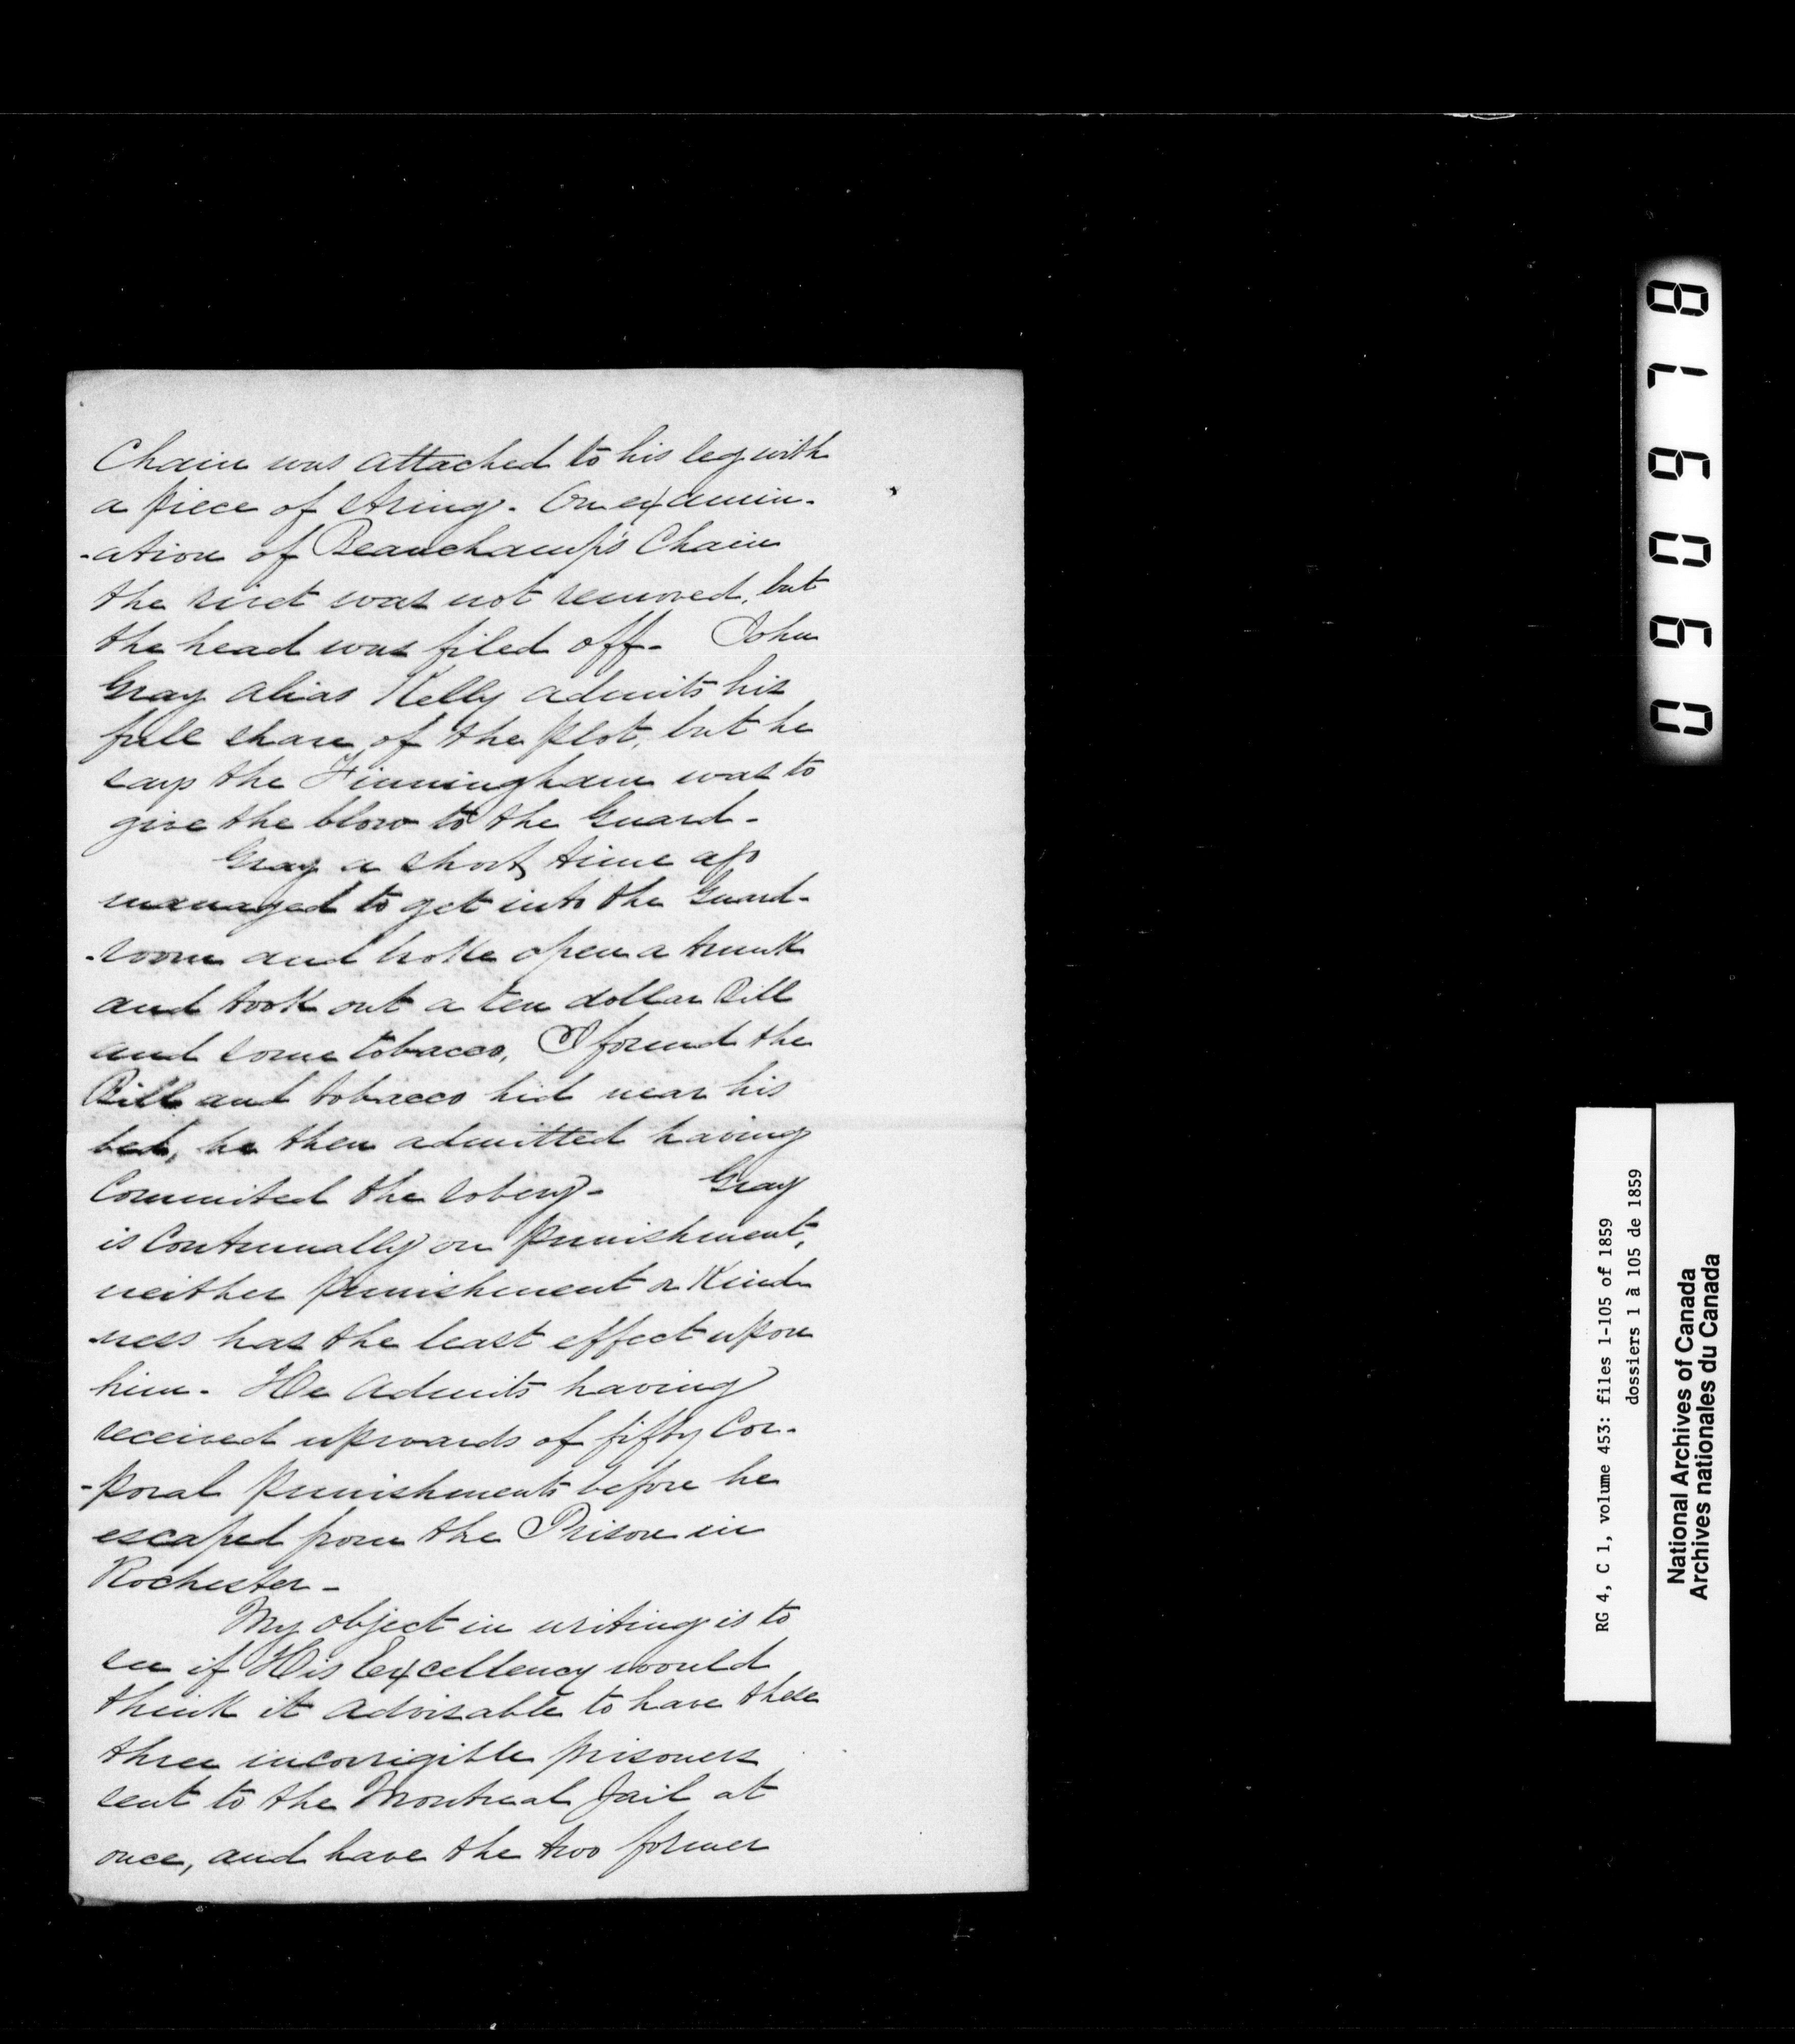 Chain was attached to his leg with
a piece of string. On examin-
-ation of Beauchamp's Chain
the rivet was not removed, but
the head was filed off. John
Gray alias Kelly admits his
full share of the plot, but he
says the Finningham was to
give the blow to the Guard.
Gray a short time ago
managed to get into the Guard-
-room and broke open a trunk
and took out a ten dollar Bill
and some tobacco, I found the
Bill and tobacco hid near his
bed, he then admitted having
Commited the robery. Gray
is Continually on punishment,
neither punishment or Kind-
-ness has the least effect upon
him. He admits having
received upwards of fifty Cor-
-poral punishments before he
escaped from the Prison in
Rochester -
My object in writing is to
see if His Excellency would
think it advisable to have these
three incorrigible prisoners
sent to the Montreal Jail at
once, and have the two former
0 6 0 6 7 8
RG 4, C 1, volume 453: files 1-105 of 1859
dossiers 1 à 105 de 1859
National Archives of Canada
Archives nationales du Canada